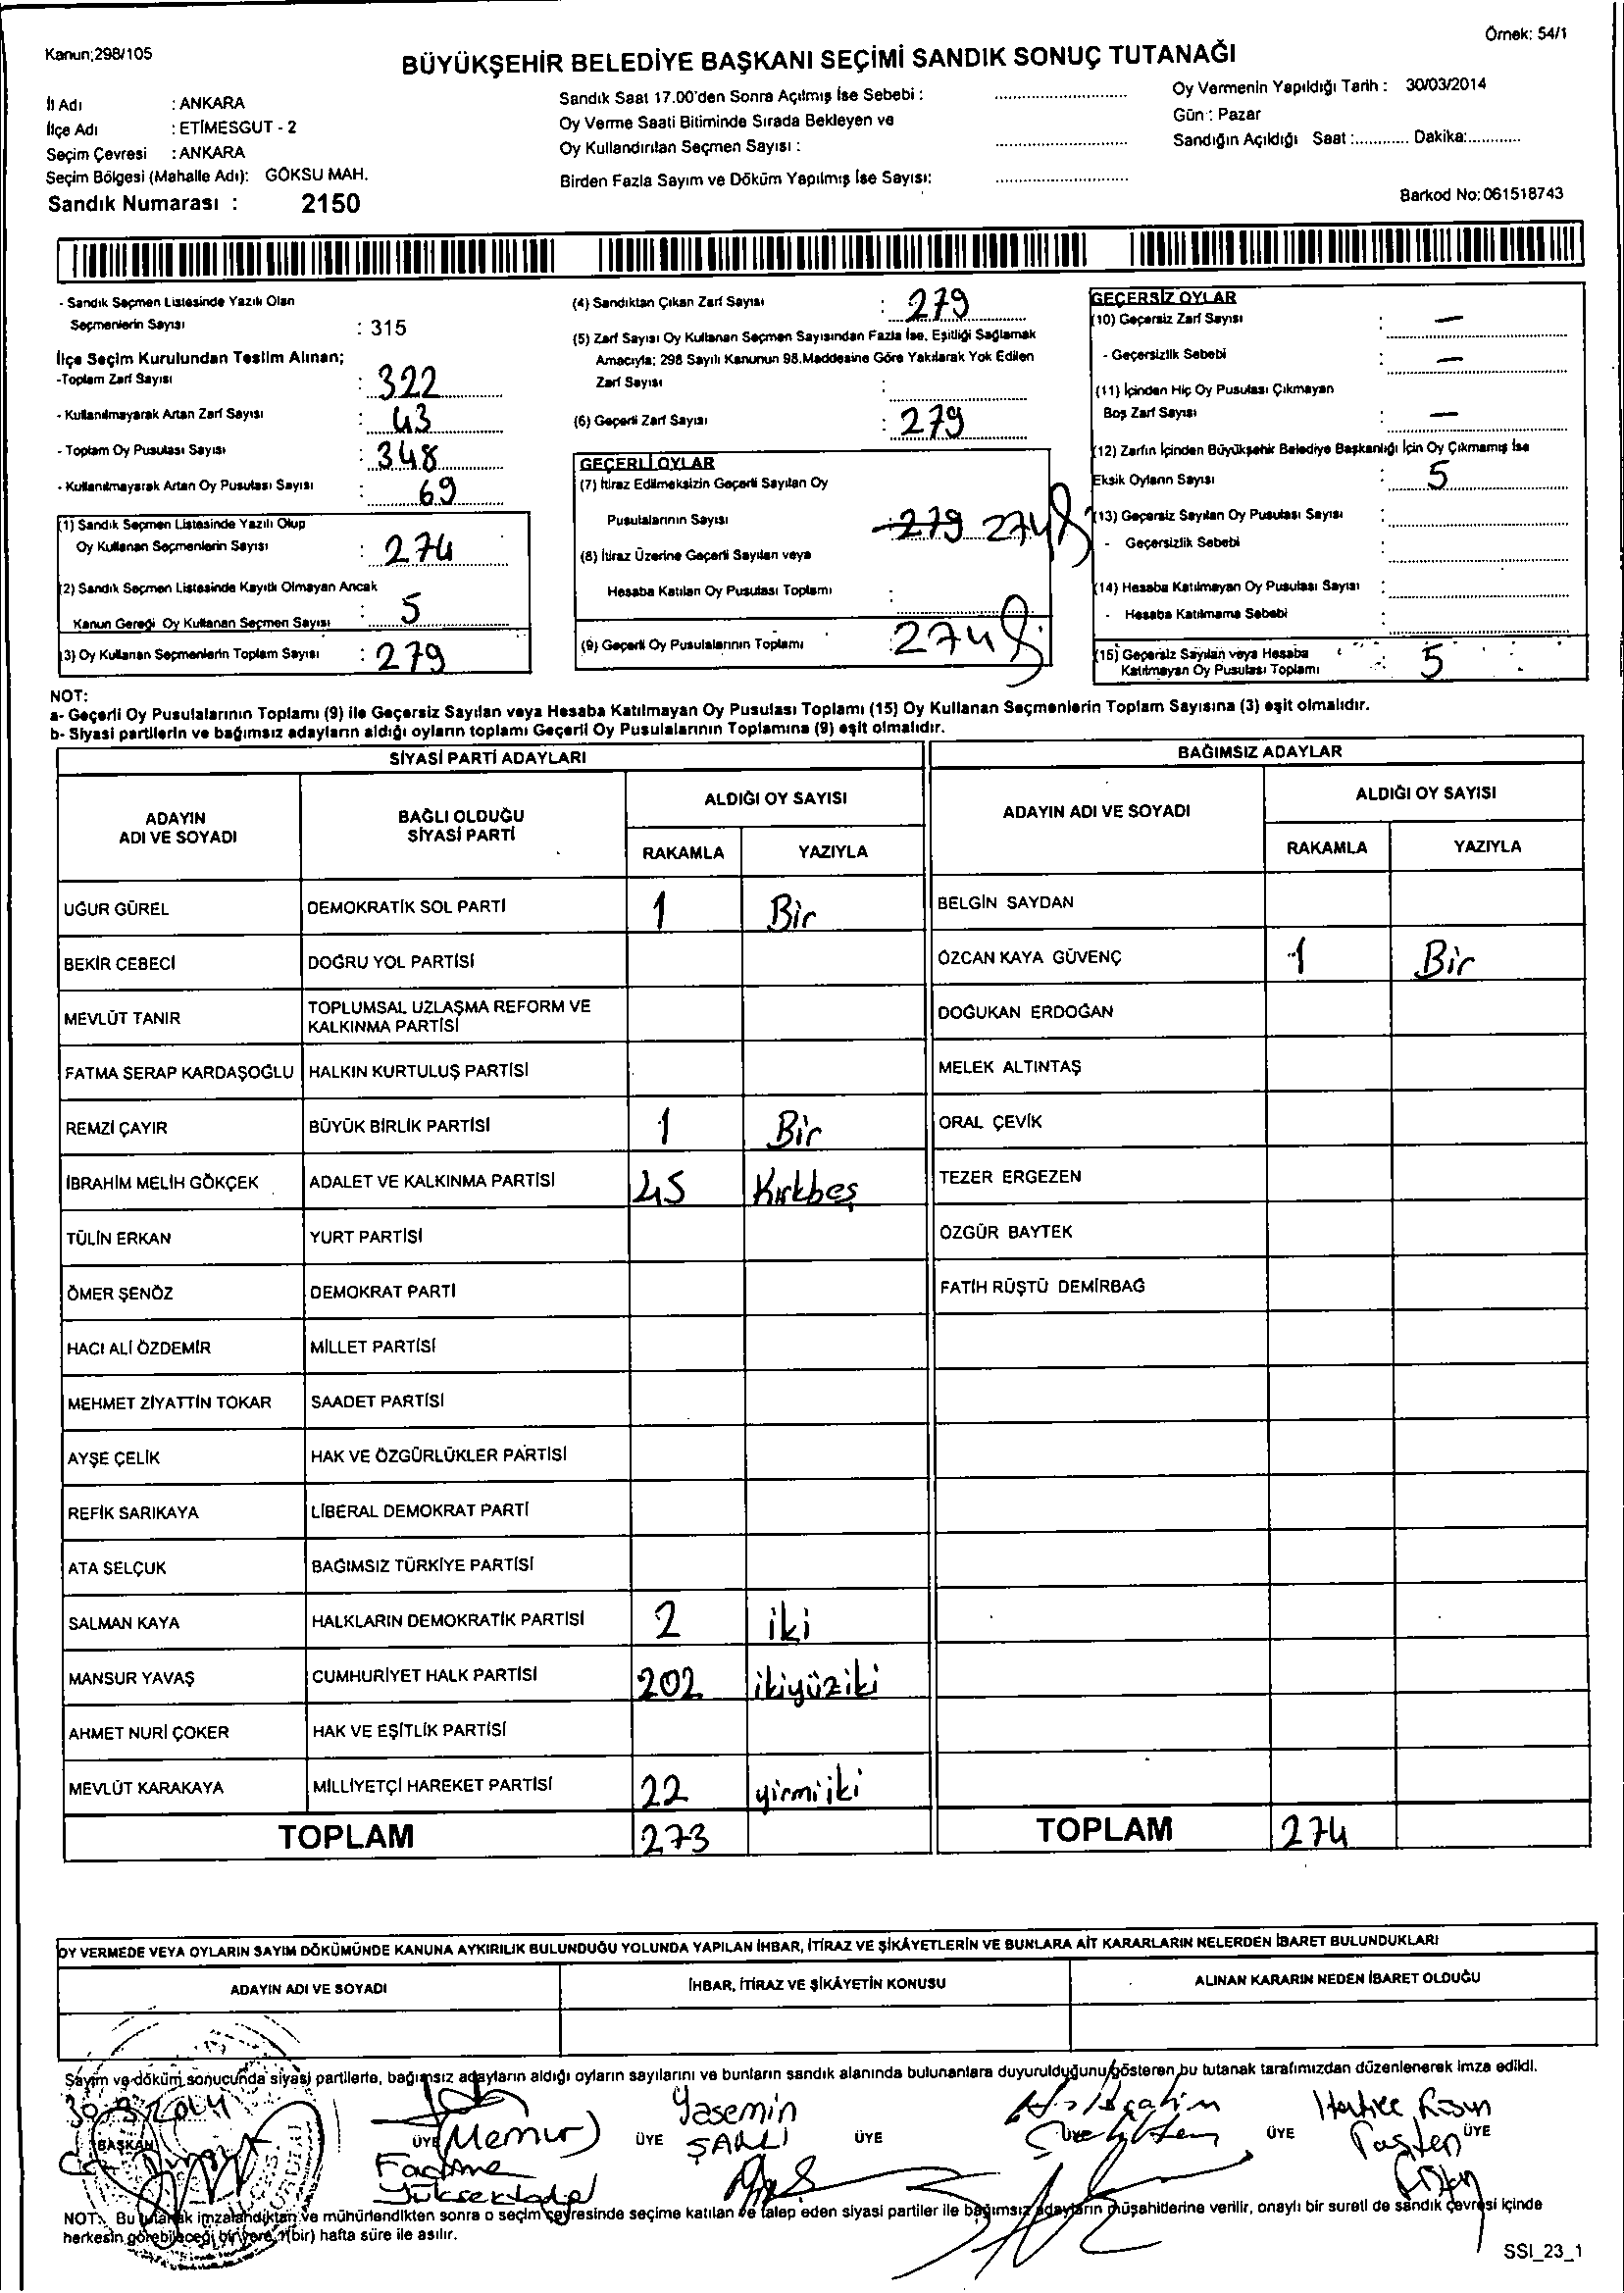 Kanun;298/105
Örnek: 54/1
BÜYÜKŞEHİR BELEDİYE BAŞKANI SEÇİMİ SANDIK SONUÇ TUTANAĞI
İl Adı : ANKARA
İlçe Adı : ETİMESGUT - 2
Seçim Çevresi : ANKARA
Seçim Bölgesi (Mahalle Adı): GÖKSU MAH.
Sandık Numarası : 2150
Sandık Saat 17.00'den Sonra Açılmış İse Sebebi :
Oy Verme Saati Bitiminde Sırada Bekleyen ve
Oy Kullandırılan Seçmen Sayısı :
Birden Fazla Sayım ve Döküm Yapılmış İse Sayısı:
Oy Vermenin Yapıldığı Tarih : 30/03/2014
Gün : Pazar
Sandığın Açıldığı Saat :............ Dakika:............
Barkod No: 061518743
- Sandık Seçmen Listesinde Yazılı Olan
Seçmenlerin Sayısı : 315
İlçe Seçim Kurulundan Teslim Alınan;
-Toplam Zarf Sayısı : 322
- Kullanılmayarak Artan Zarf Sayısı : 43
- Toplam Oy Pusulası Sayısı : 348
- Kullanılmayarak Artan Oy Pusulası Sayısı : 69
(1) Sandık Seçmen Listesinde Yazılı Olup
Oy Kullanan Seçmenlerin Sayısı : 274
(2) Sandık Seçmen Listesinde Kayıtlı Olmayan Ancak
Kanun Gereği Oy Kullanan Seçmen Sayısı : 5
(3) Oy Kullanan Seçmenlerin Toplam Sayısı : 279
(4) Sandıktan Çıkan Zarf Sayısı : 279
(5) Zarf Sayısı Oy Kullanan Seçmen Sayısından Fazla İse, Eşitliği Sağlamak
Amacıyla; 298 Sayılı Kanunun 98.Maddesine Göre Yakılarak Yok Edilen
Zarf Sayısı :
(6) Geçerli Zarf Sayısı : 279
GEÇERLİ OYLAR
(7) İtiraz Edilmeksizin Geçerli Sayılan Oy
Pusulalarının Sayısı : 279 274
(8) İtiraz Üzerine Geçerli Sayılan veya
Hesaba Katılan Oy Pusulası Toplamı :
(9) Geçerli Oy Pusulalarının Toplamı : 274
GEÇERSİZ OYLAR
(10) Geçersiz Zarf Sayısı : -
- Geçersizlik Sebebi : -
(11) İçinden Hiç Oy Pusulası Çıkmayan
Boş Zarf Sayısı : -
(12) Zarfın İçinden Büyükşehir Belediye Başkanlığı İçin Oy Çıkmamış İse
Eksik Oyların Sayısı : 5
(13) Geçersiz Sayılan Oy Pusulası Sayısı :
- Geçersizlik Sebebi :
(14) Hesaba Katılmayan Oy Pusulası Sayısı :
- Hesaba Katılmama Sebebi :
(15) Geçersiz Sayılan veya Hesaba
Katılmayan Oy Pusulası Toplamı : 5
NOT:
a- Geçerli Oy Pusulalarının Toplamı (9) ile Geçersiz Sayılan veya Hesaba Katılmayan Oy Pusulası Toplamı (15) Oy Kullanan Seçmenlerin Toplam Sayısına (3) eşit olmalıdır.
b- Siyasi partilerin ve bağımsız adayların aldığı oyların toplamı Geçerli Oy Pusulalarının Toplamına (9) eşit olmalıdır.
SİYASİ PARTİ ADAYLARI
ADAYIN ADI VE SOYADI
BAĞLI OLDUĞU SİYASİ PARTİ
ALDIĞI OY SAYISI
RAKAMLA YAZIYLA
UĞUR GÜREL DEMOKRATİK SOL PARTİ 1 Bir
BEKİR CEBECİ DOĞRU YOL PARTİSİ
MEVLÜT TANIR TOPLUMSAL UZLAŞMA REFORM VE KALKINMA PARTİSİ
FATMA SERAP KARDAŞOĞLU HALKIN KURTULUŞ PARTİSİ
REMZİ ÇAYIR BÜYÜK BİRLİK PARTİSİ 1 Bir
İBRAHİM MELİH GÖKÇEK ADALET VE KALKINMA PARTİSİ 45 Kırkbeş
TÜLİN ERKAN YURT PARTİSİ
ÖMER ŞENÖZ DEMOKRAT PARTİ
HACI ALİ ÖZDEMİR MİLLET PARTİSİ
MEHMET ZİYATTİN TOKAR SAADET PARTİSİ
AYŞE ÇELİK HAK VE ÖZGÜRLÜKLER PARTİSİ
REFİK SARIKAYA LİBERAL DEMOKRAT PARTİ
ATA SELÇUK BAĞIMSIZ TÜRKİYE PARTİSİ
SALMAN KAYA HALKLARIN DEMOKRATİK PARTİSİ 2 iki
MANSUR YAVAŞ CUMHURİYET HALK PARTİSİ 202 ikiyüziki
AHMET NURİ ÇOKER HAK VE EŞİTLİK PARTİSİ
MEVLÜT KARAKAYA MİLLİYETÇİ HAREKET PARTİSİ 22 yirmiiki
TOPLAM 273
BAĞIMSIZ ADAYLAR
ADAYIN ADI VE SOYADI
ALDIĞI OY SAYISI
RAKAMLA YAZIYLA
BELGİN SAYDAN
ÖZCAN KAYA GÜVENÇ 1 Bir
DOĞUKAN ERDOĞAN
MELEK ALTINTAŞ
ORAL ÇEVİK
TEZER ERGEZEN
ÖZGÜR BAYTEK
FATİH RÜŞTÜ DEMİRBAĞ
TOPLAM 274
OY VERMEDE VEYA OYLARIN SAYIM DÖKÜMÜNDE KANUNA AYKIRILIK BULUNDUĞU YOLUNDA YAPILAN İHBAR, İTİRAZ VE ŞİKÂYETLERİN VE BUNLARA AİT KARARLARIN NELERDEN İBARET BULUNDUKLARI
ADAYIN ADI VE SOYADI
İHBAR, İTİRAZ VE ŞİKÂYETİN KONUSU
ALINAN KARARIN NEDEN İBARET OLDUĞU
Sayım ve döküm sonucunda siyasi partilerle, bağımsız adayların aldığı oyların sayılarını ve bunların sandık alanında bulunanlara duyurulduğunu gösteren bu tutanak tarafımızdan düzenlenerek imza edildi.
30 3 2014
BAŞKAN
ÜYE (Memur)
ÜYE Yasemin ŞANLI
ÜYE
ÜYE
ÜYE
NOT: Bu tutanak imzalandıktan ve mühürlendikten sonra o seçim çevresinde seçime katılan ve talep eden siyasi partiler ile bağımsız adayların müşahitlerine verilir, onaylı bir sureti de sandık çevresi içinde
herkesin görebileceği bir yere 1(bir) hafta süre ile asılır.
SSI_23_1